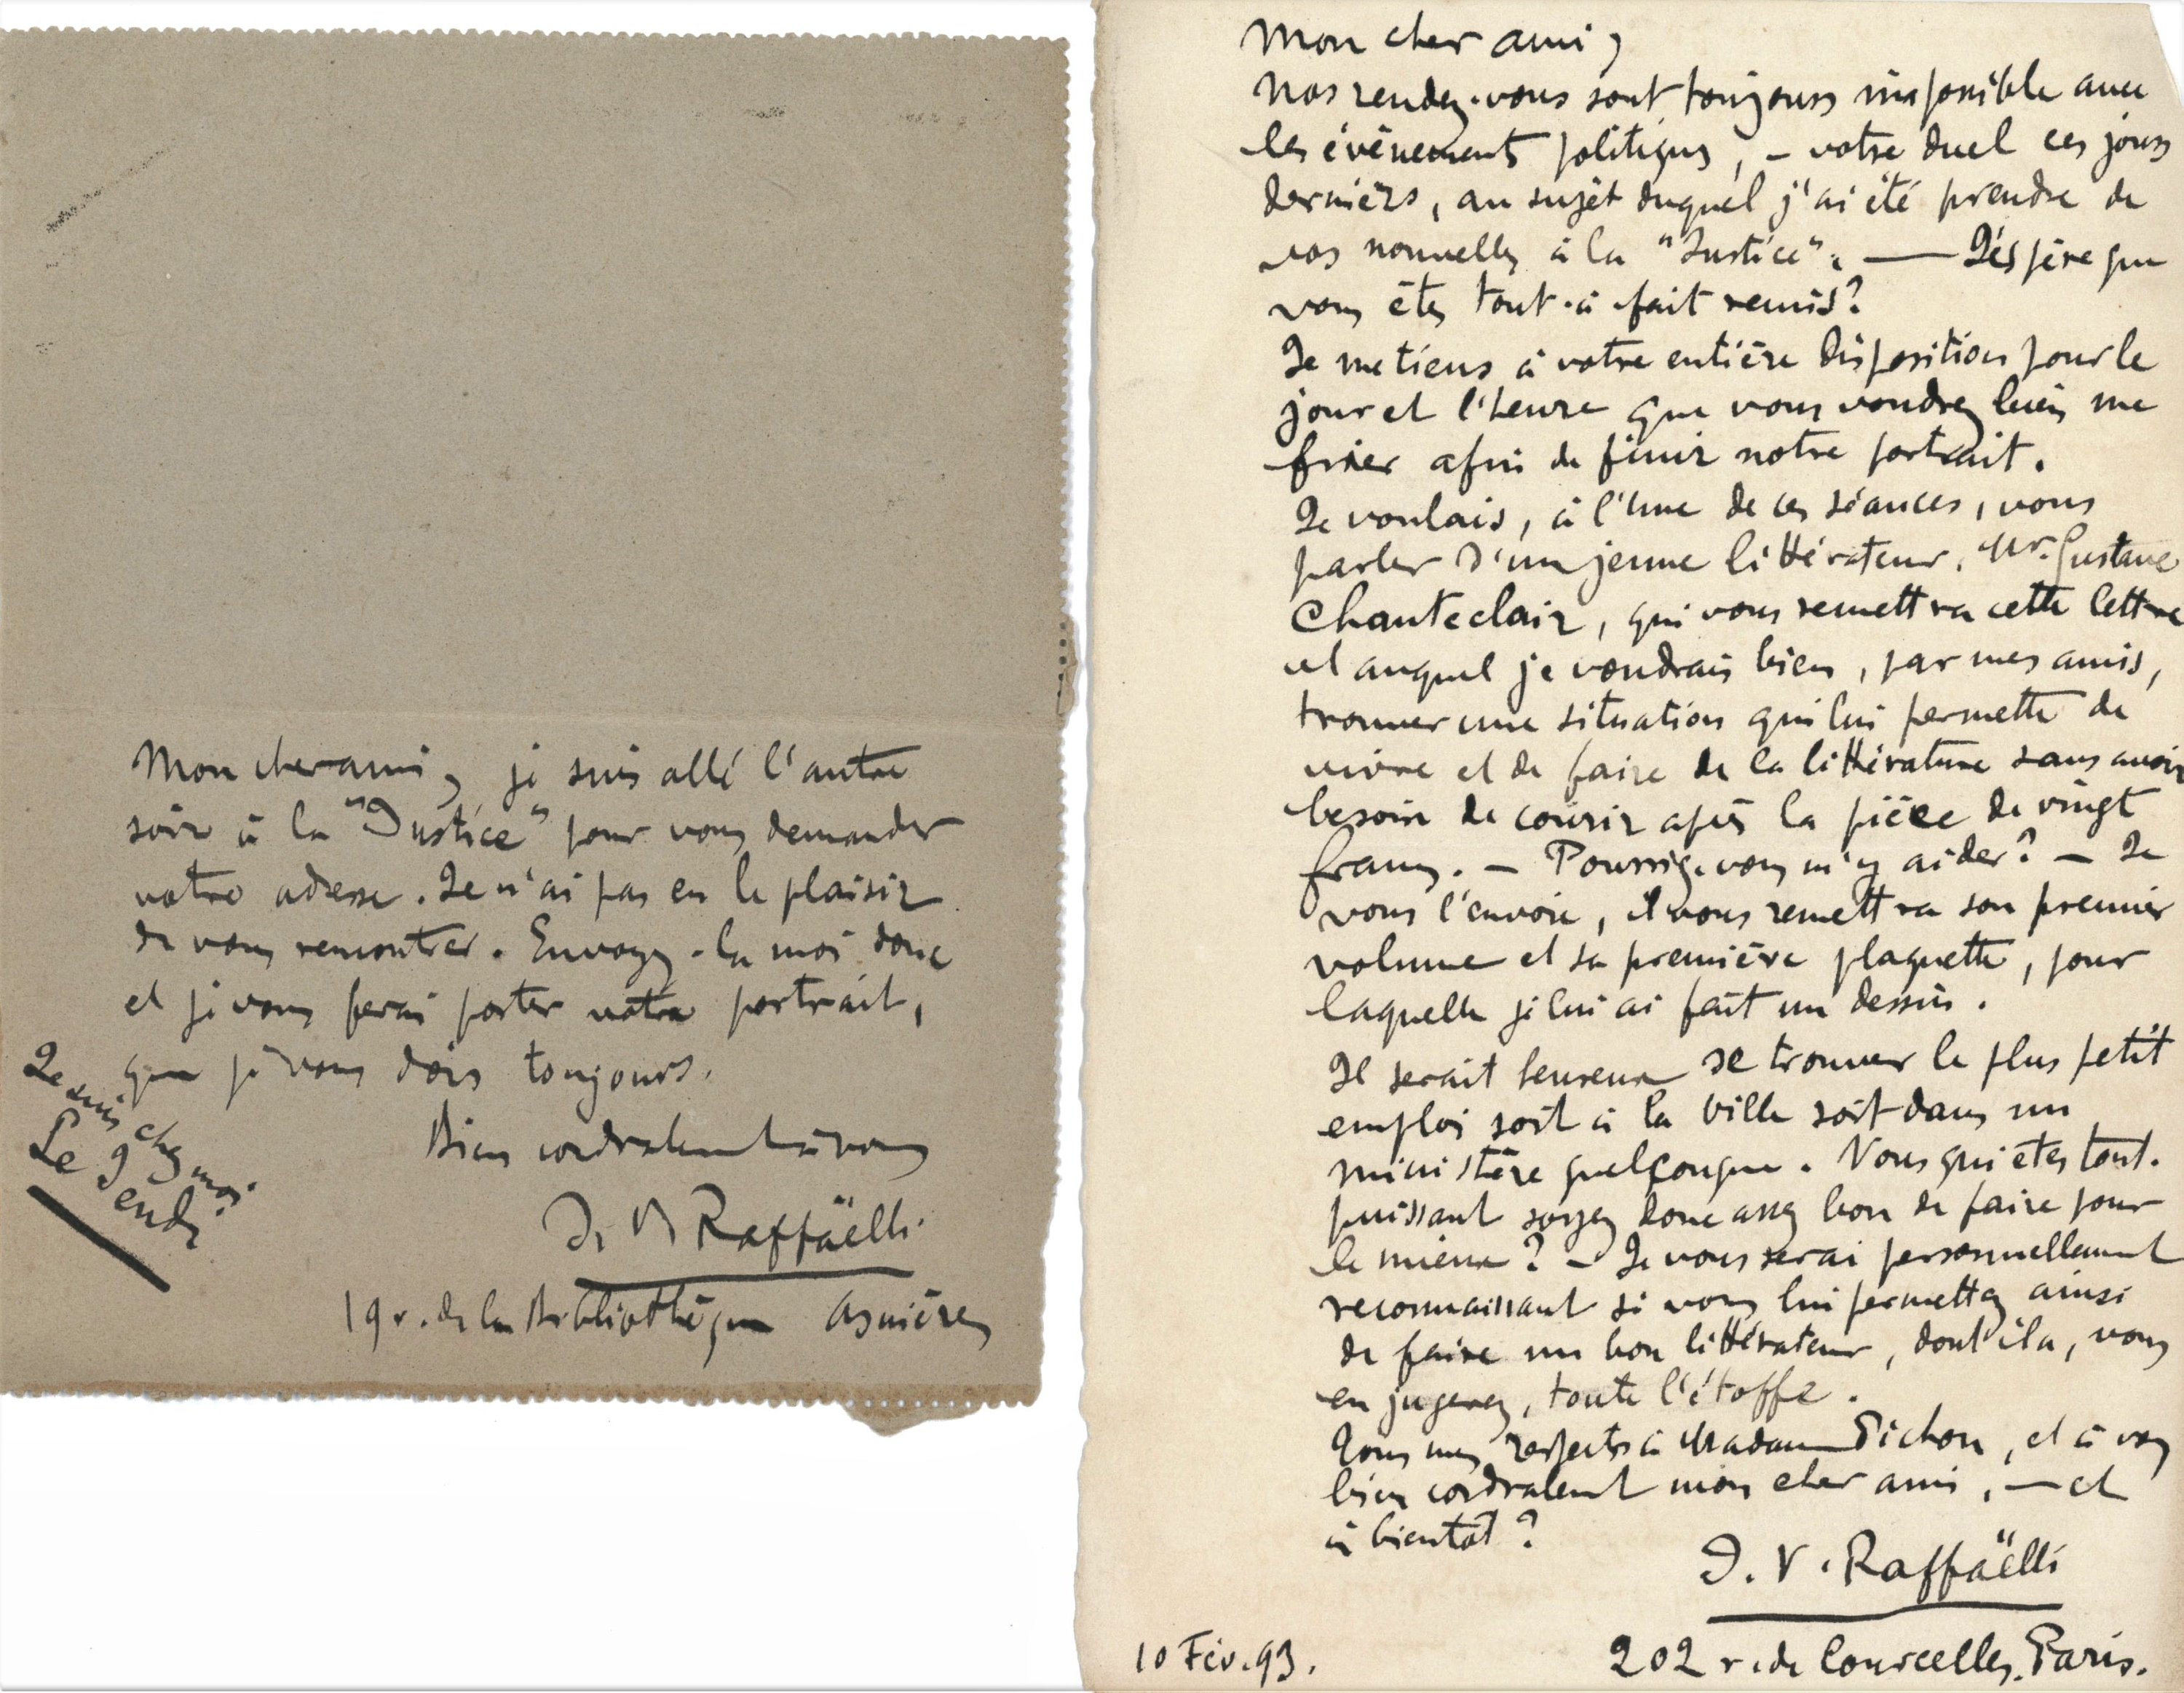 Mon cher ami, je suis allé l'autre
soir à la "Justice" pour vous demander
votre adresse. Je n'ai pas eu le plaisir
de vous rencontrer. Envoyez-la moi donc
et je vous ferai porter votre portrait,
que je vous dois toujours.
Bien cordialement à vous
J. V Raffaëlli
19 r. de la Bibliothèque Asnières
Je suis chez moi
Le Jeudi
Mon cher ami,
Nos rendez-vous sont toujours impossible avec
les évènements politiques, – votre duel ces jours
derniers, au sujet duquel j'ai été prendre de
vos nouvelles à la "Justice". — J'éspère que
vous êtes tout-à fait remis?
Je me tiens à votre entière disposition pour le
jour et l'heure que vous voudrez bien me
fixer afin de finir notre portrait.
Je voulais, à l'une de ces séances, vous
parler d'un jeune littérateur, Mr. Gustave
Chanteclair, qui vous remettra cette lettre
et auquel je voudrais bien, par mes amis,
trouver une situation qui lui permette de
vivre et de faire de la littérature sans avoir
besoin de courir après la pièce de vingt
francs. – Pourriez-vous m'y aider? – Je
vous l'envoie, il vous remettra son premier
volume et sa première plaquette, pour
laquelle je lui ai fait un dessin.
Il serait heureux de trouver le plus petit
emploi soit à la Ville soit dans un
ministère quelconque. Vous qui êtes tout-
puissant soyez donc assez bon de faire pour
le mieux? – Je vous serai personnellement
reconnaissant si vous lui permettez ainsi
de faire un bon littérateur, dont il a, vous
en jugerez, toute l'étoffe.
Tous mes respects à Madame Pichon, et à vous
bien cordialement mon cher ami, — et
à bientôt?
J. V. Raffaëlli
10 Fév. 93.
202 r. de Courcelles. Paris.